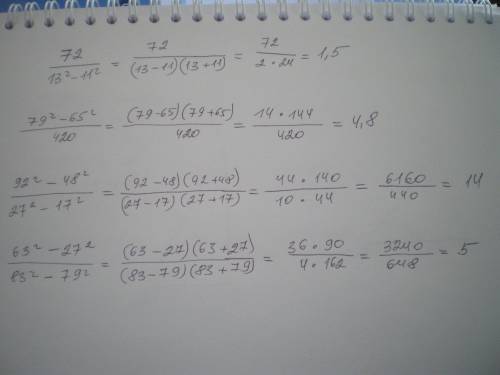 72 / (13² − 11²) = 72 / ((13−11)(13+11)) = 72 / (2 · 24) = 1,5
(79² − 65²) / 420 = ((79−65)(79+65)) / 420 = (14 · 144) / 420 = 4,8
(92² − 48²) / (27² − 17²) = ((92−48)(92+48)) / ((27−17)(27+17)) = (44 · 140) / (10 · 44) = 6160 / 440 = 14
(63² − 27²) / (83² − 79²) = ((63−27)(63+27)) / ((83−79)(83+79)) = (36 · 90) / (4 · 162) = 3240 / 648 = 5